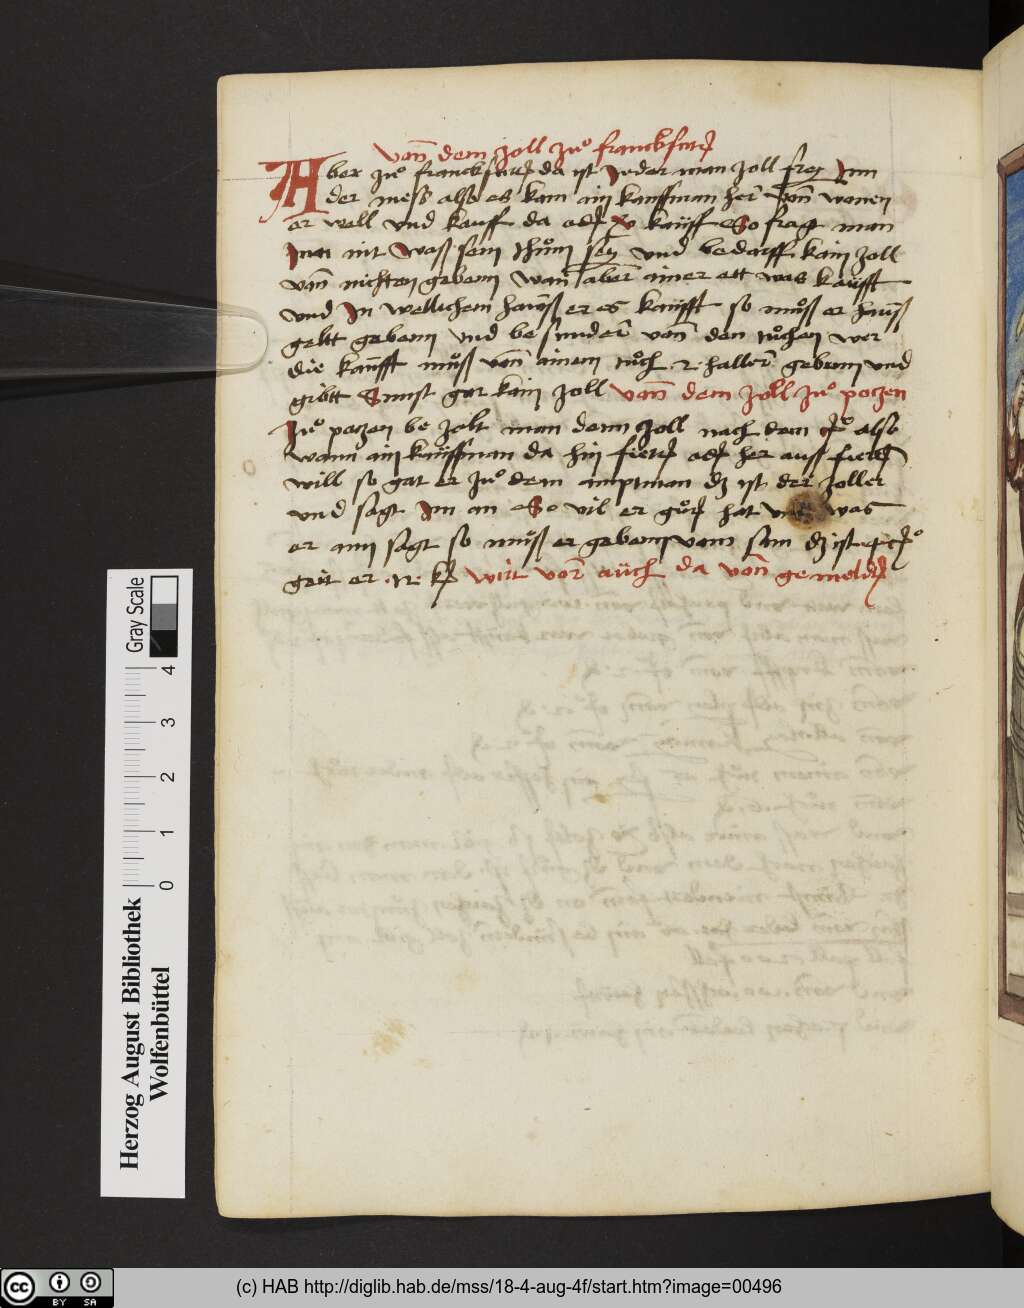 Von dem zoll zuo franckfurt
Aber zuo franckfurt da ist Jeder man zoll frey Inn
der mess also es kam ain kauffman her von wenen
er well vnd kauff da oder v kauff So frag man
Inn nit Waß sein thuom sey vnd bedarff kain zoll
von nichten gebenn wan aber ainer ett was kaufft
vnd In wellichem hauß er es kaufft so muoß er hauß
geltt gebenn vnd besunder von den tuochen wer
die kaufft muoß von ainem tuoch .2. haller gebenn vnd
gibtt Sunst gar kain zoll Von dem zoll zuo pozen
Zuo pozen be zalt man denn zoll nach dem also
wann ain kauffman da hin fiert oder her auss fieren
will so gat er zuo dem amptman dz ist der zoller
vnd sagt Im an So vil er guot hat was
er im sagt so muoß er gebenn vom som dz ist
geit er kr wirt vor auch da von gemeldt
Gray Scale
4
3
2
1
0
Herzog August Bibliothek
Wolfenbüttel
cc BY SA
(c) HAB http://diglib.hab.de/mss/18-4-aug-4f/start.htm?image=00496